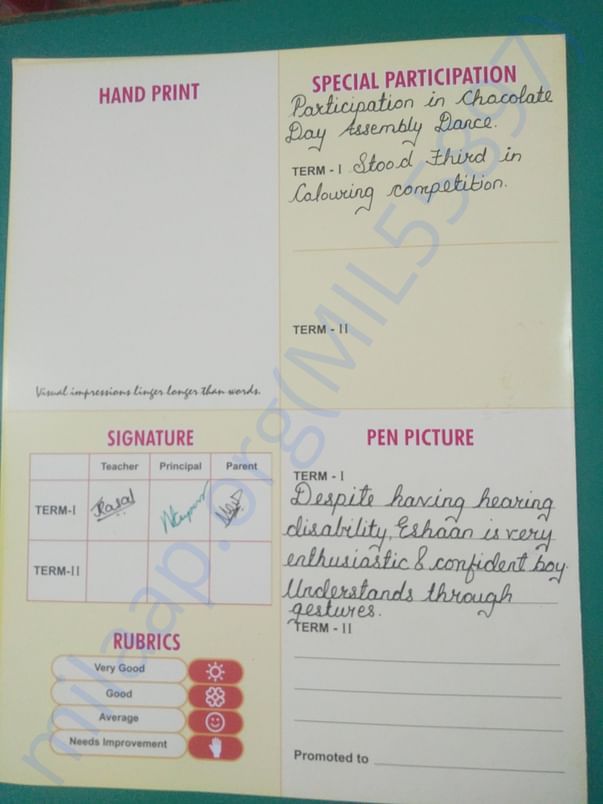 HAND PRINT
Visual impressions linger longer than words.
SPECIAL PARTICIPATION
Participation in Chocolate
Day Assembly Dance.
TERM - I Stood Third in
Colouring competition.
TERM - II
SIGNATURE
Teacher Principal Parent
TERM-I
TERM-II
RUBRICS
Very Good
Good
Average
Needs Improvement
PEN PICTURE
TERM - I
Despite having hearing
disability, Eshaan is very
enthusiastic & confident boy.
Understands through
gestures.
TERM - II
Promoted to
milaap.org(MIL55897)